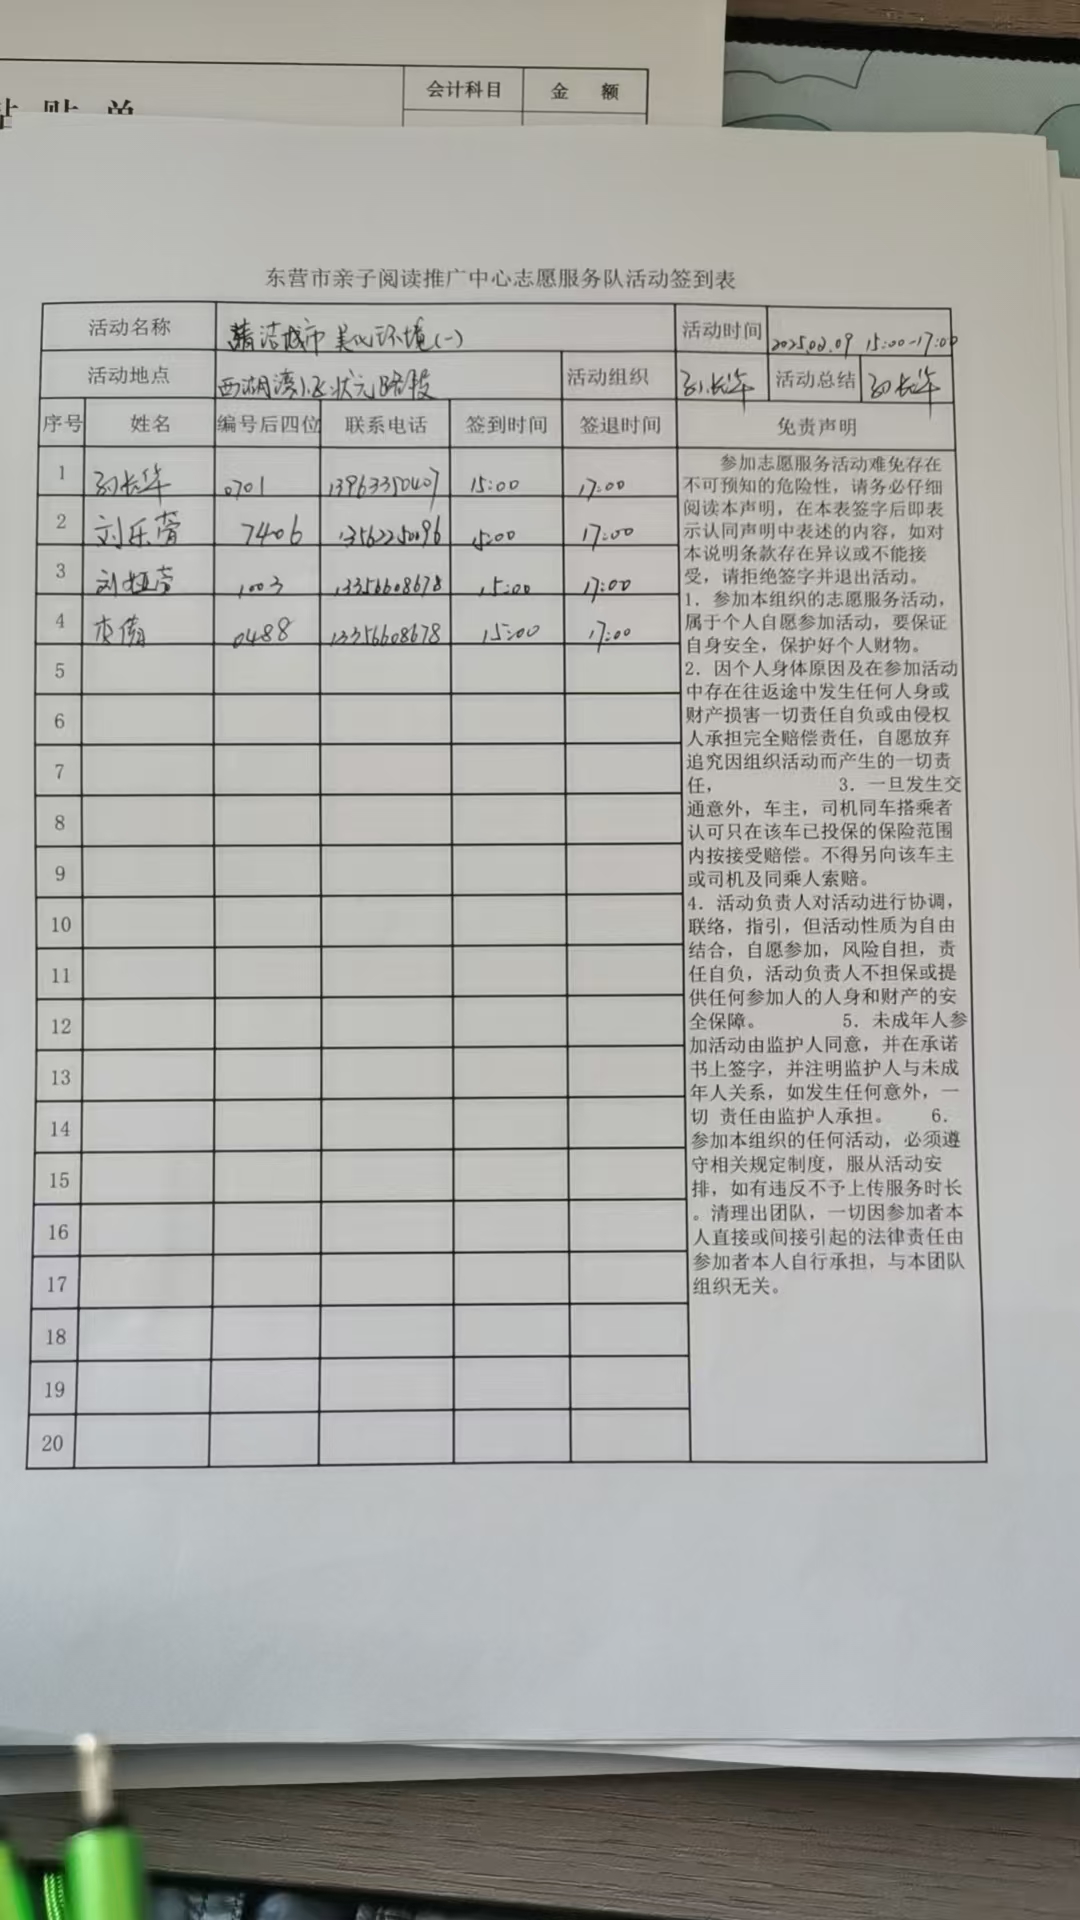 会计科目 金 额
粘 贴 单
东营市亲子阅读推广中心志愿服务队活动签到表
活动名称 清洁城市 美化环境(一) 活动时间 2025.02.09 15:00-17:00
活动地点 西湖湾小区状元路段 活动组织 孙长华 活动总结 孙长华
序号 姓名 编号后四位 联系电话 签到时间 签退时间 免责声明
1 孙长华 0701 13963350407 15:00 17:00
2 刘乐萱 7406 13562250196 15:00 17:00
3 刘娅萱 1003 13356608678 15:00 17:00
4 李倩 0488 13356608678 15:00 17:00
5
6
7
8
9
10
11
12
13
14
15
16
17
18
19
20
参加志愿服务活动难免存在
不可预知的危险性，请务必仔细
阅读本声明，在本表签字后即表
示认同声明中表述的内容，如对
本说明条款存在异议或不能接
受，请拒绝签字并退出活动。
1．参加本组织的志愿服务活动，
属于个人自愿参加活动，要保证
自身安全，保护好个人财物。
2．因个人身体原因及在参加活动
中存在往返途中发生任何人身或
财产损害一切责任自负或由侵权
人承担完全赔偿责任，自愿放弃
追究因组织活动而产生的一切责
任， 3．一旦发生交
通意外，车主，司机同车搭乘者
认可只在该车已投保的保险范围
内按接受赔偿。不得另向该车主
或司机及同乘人索赔。
4．活动负责人对活动进行协调，
联络，指引，但活动性质为自由
结合，自愿参加，风险自担，责
任自负，活动负责人不担保或提
供任何参加人的人身和财产的安
全保障。 5．未成年人参
加活动由监护人同意，并在承诺
书上签字，并注明监护人与未成
年人关系，如发生任何意外，一
切 责任由监护人承担。 6．
参加本组织的任何活动，必须遵
守相关规定制度，服从活动安
排，如有违反不予上传服务时长
。清理出团队，一切因参加者本
人直接或间接引起的法律责任由
参加者本人自行承担，与本团队
组织无关。